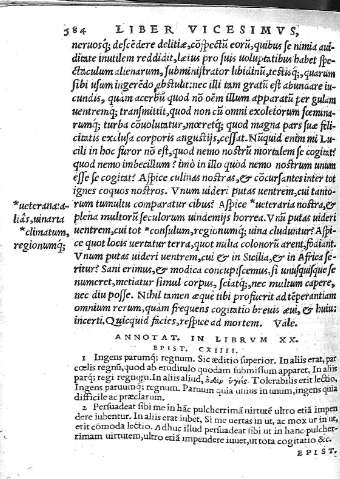 584 LIBER VICESIMVS,
neruosq́; descẽdere delitiæ, cõspectũ eorũ, quibus se nimia au-
ditate inutilem reddidit, læius pro suis uoluptatibus habet spe-
ctaculum alienarum, subministrator libidinũ, testisq́, quarum
sibi usum ingerẽdo abstulit: nec illi tam gratũ est abunaare iu-
cundis, quàm acerbũ quod nõ oẽm illum apparatũ per gulam
uentremq́; transmittit, quod non cũ omni exoletorum fœmina-
rumq́; turba cõuolutatur, mœretq́; quod magna pars suæ feli-
citatis exclusa corporis angustijs, cessat. Nũquid enim mi Lu-
cili in hoc furor nõ est, quod nemo nostrũ mortalem se cogitat?
quod nemo imbecillum? imò in illo quòd nemo nostrum unum
esse se cogitat? Aspice culinas nostras, & cõcursantes inter tot
ignes coquos nostros. Vnum uideri putas uentrem, cui tanto-
rum tumultu comparatur cibus? Aspice *ueteraria nostra, &
plena multorũ seculorum uindemijs horrea. Vnũ putas uideri
uentrem, cui tot *consulum, regionumq́; uina cluduntur? Aspi-
ce quot locis uertatur terra, quot millia colonorũ arent, fodiant.
Vnum putas uideri uentrem, cui & in Sicilia, & in Africa se-
ritur? Sani erimus, & modica concupiscemus. si unusquisque se
numeret, metiatur simul corpus, sciatq́;, nec multum capere,
nec diu posse. Nihil tamen æque tibi profuerit ad tẽperantiam
omnium rerum, quàm frequens cogitatio breuis æui, & huius
incerti. Quicquid facies, respice ad mortem. Vale.
*ueteranæ: a-
liâs, uinaria
*climatum,
regionumq́;
ANNOTAT. IN LIBRVM XX.
EPIST. CXIIII.
1 Ingens parumq́; regnum. Sic æditio superior. In aliis erat, par
cœlis regnũ, quod ab eruditulo quodam submissum apparet. In aliis
parq́; regi regnum. In alits aliud, Tolerabilis erit lectio,
Ingens paruumq́; regnum. Paruum quia unius in unum, ingens quia
difficile ac præclarum.
2 Persuadeat sibi me in hãc pulcherrimã uirtutẽ ultro etiã impen
dere iubentur. In aliis erat iubet. Si me uertas in ut, ac mox ur in ut,
erit cõmoda lectio. Adhuc illud persuadeat sibi ut in hanc pulcher-
rimam uirtutem, ultro etiã impendere iuuet, ut tota cogitatio &c.
EPIST.